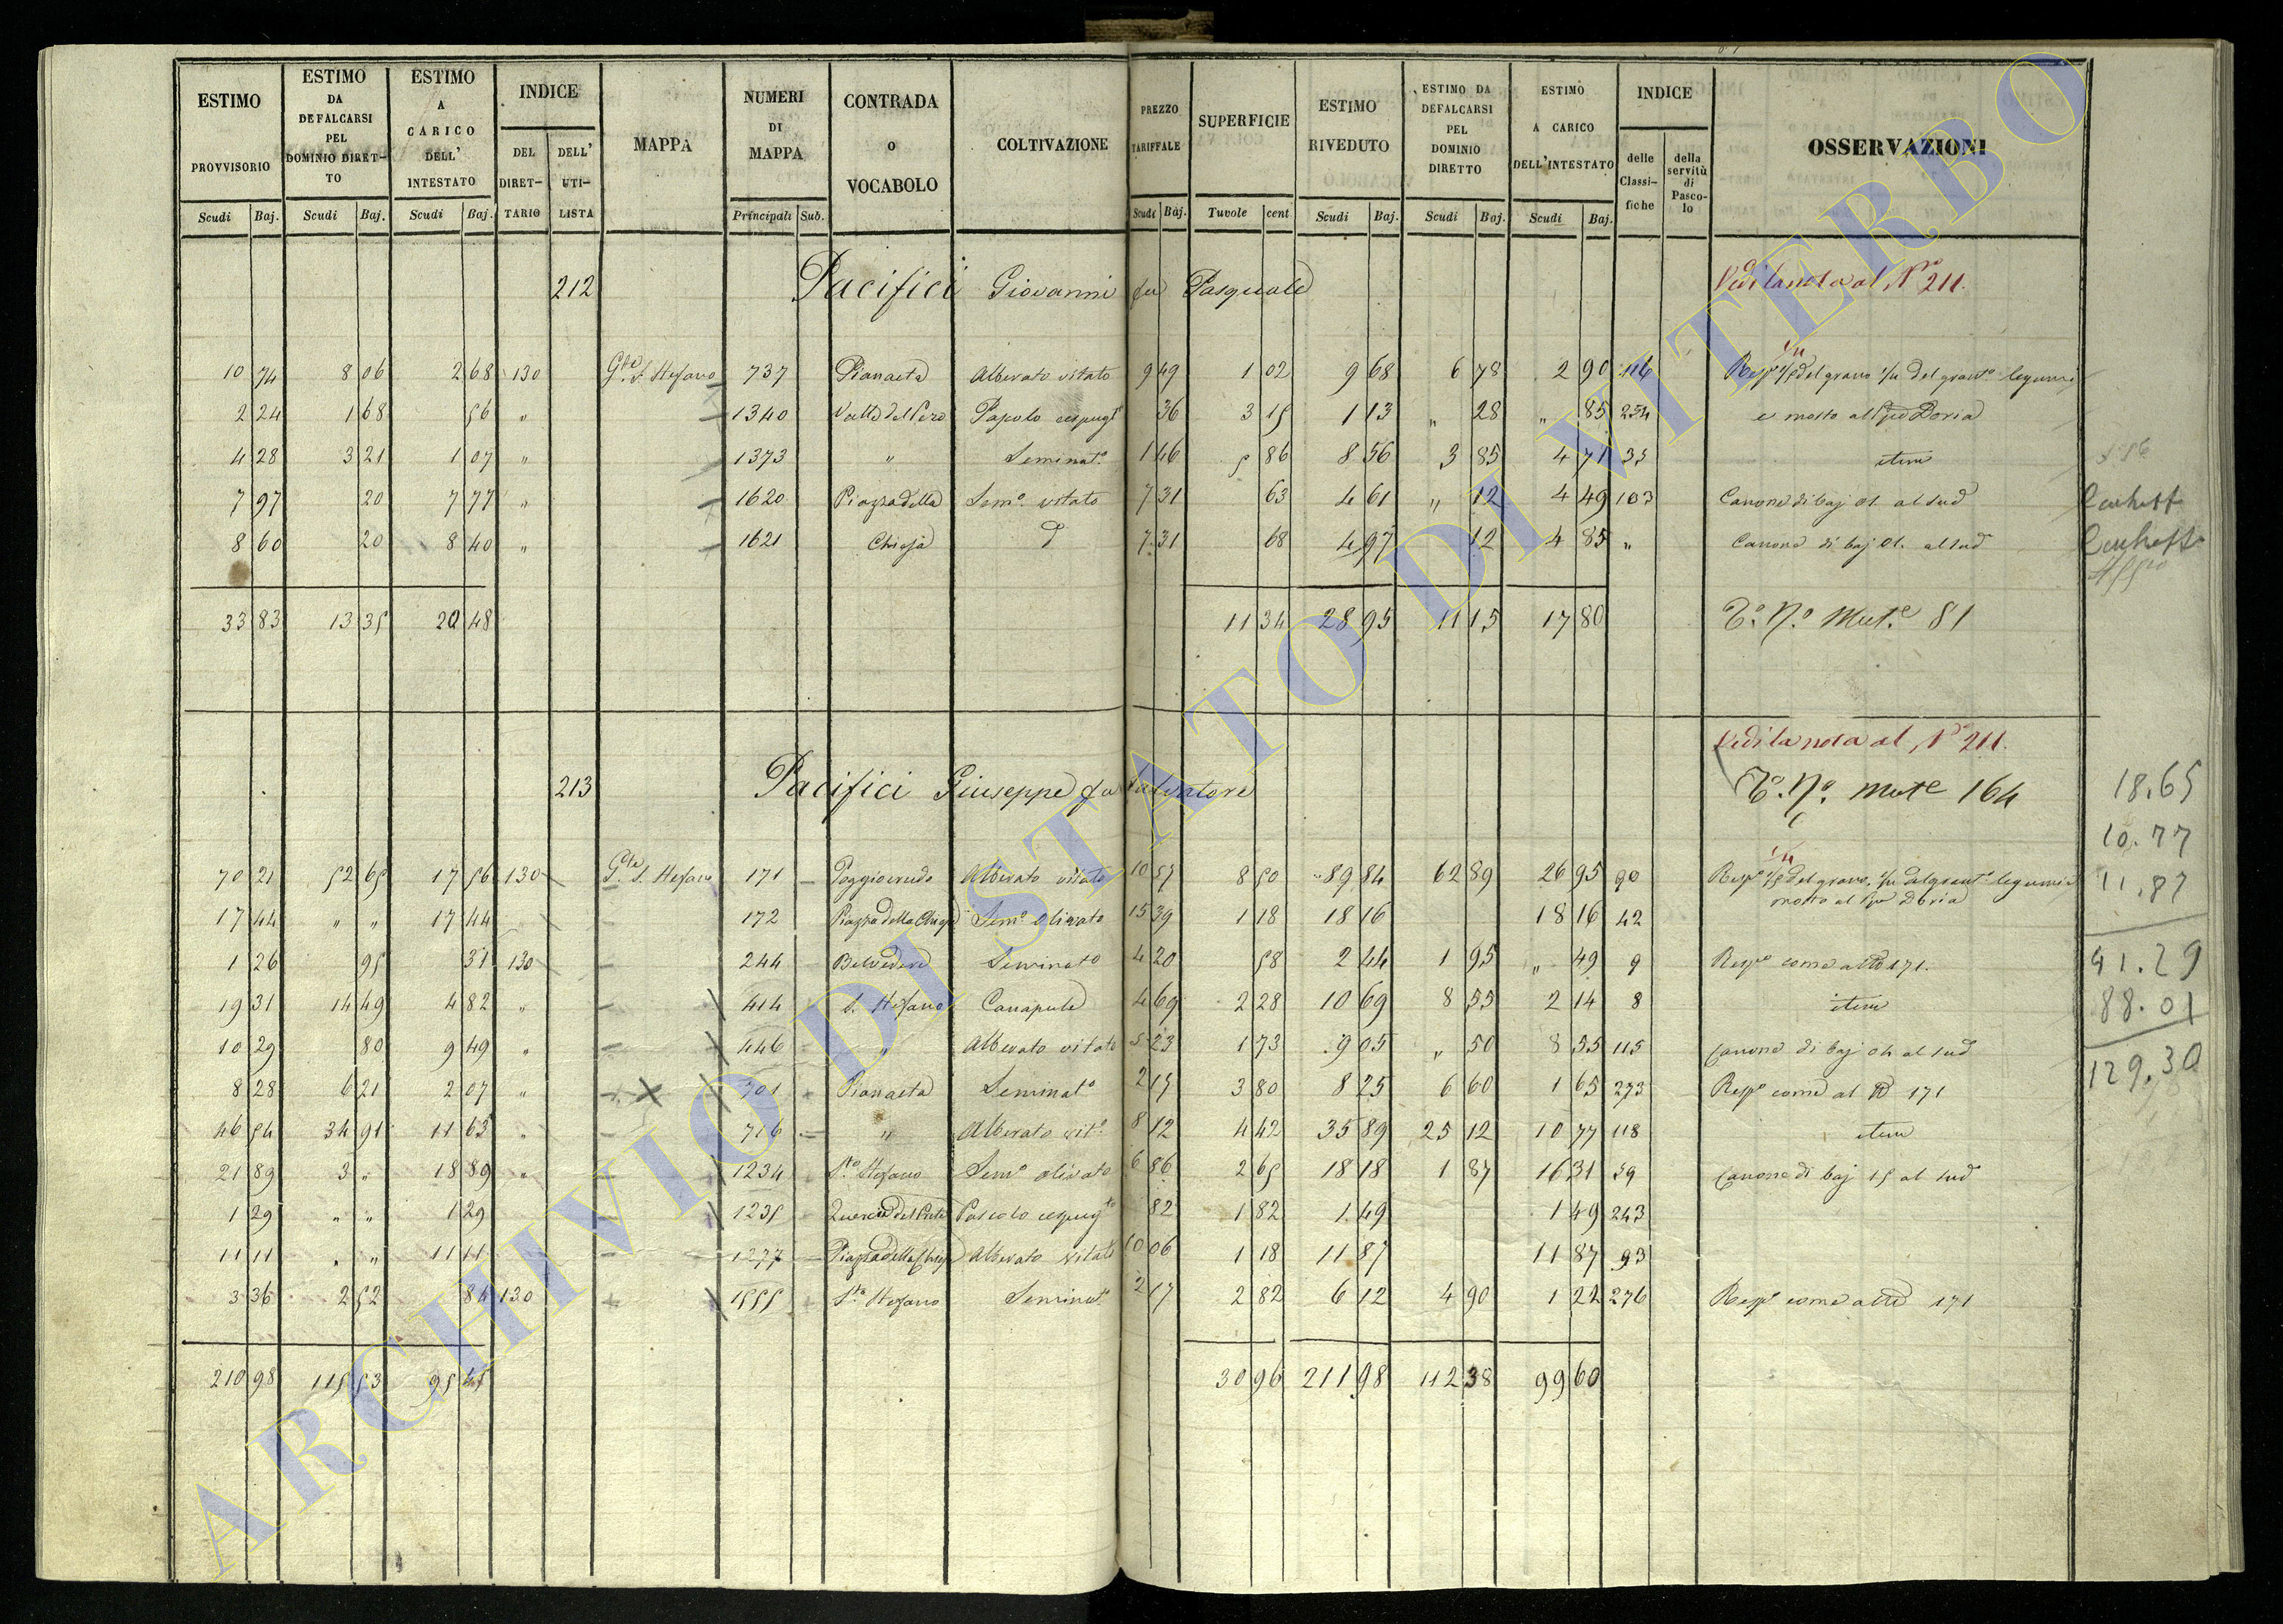 ESTIMO PROVVISORIO | ESTIMO DA DEFALCARSI PEL DOMINIO DIRET-TO | ESTIMO A CARICO DELL' INTESTATO | INDICE DEL DIRET-TARIO | DELL' UTI-LISTA | MAPPA | NUMERI DI MAPPA | CONTRADA O VOCABOLO | COLTIVAZIONE | PREZZO TARIFFALE | SUPERFICIE | ESTIMO RIVEDUTO | ESTIMO DA DEFALCARSI PEL DOMINIO DIRETTO | ESTIMO A CARICO DELL'INTESTATO | INDICE delle Classi-fiche | della servitù di Pasco-lo | OSSERVAZIONI
Scudi | Baj. | Scudi | Baj. | Scudi | Baj. | Principali | Sub. | Scudi | Baj. | Tavole | cent | Scudi | Baj. | Scudi | Baj. | Scudi | Baj.
212 Pacifici Giovanni fu Pasquale Vedi la nota al N° 211.
10 74 | 8 06 | 2 68 | 130 | Gte S. Stefano | 737 | Pianaeta | Alberato vitato | 9 49 | 1 02 | 9 68 | 6 78 | 2 90 | 116 | Respe 1/5 del grano 1/4 del grant° legumi
2 24 | 1 68 | 56 | " | 1340 | Valle del Pero | Pascolo cespugto | 36 | 3 15 | 1 13 | " 28 | " 85 | 254 | e mosto al Ppe Doria
4 28 | 3 21 | 1 07 | " | 1373 | " | Seminat° | 1 46 | 5 86 | 8 56 | 3 85 | 4 71 | 33 | item
7 97 | 20 | 7 77 | " | 1620 | Piazza della | Sem° vitato | 7 31 | 63 | 4 61 | " 12 | 4 49 | 103 | Canone di baj 01. al sud
8 60 | 20 | 8 40 | " | 1621 | Chiesa | 7 31 | 68 | 4 97 | 12 | 4 85 | " | Canone di baj 01. al sud
33 83 | 13 35 | 20 48 | 11 34 | 28 95 | 11 15 | 17 80 | T° N° Mute 81
Vedi la nota al N° 211.
213 Pacifici Giuseppe fu Salvatore T° N° mute 164
18.65
10.77
11.87
41.29
88.01
129.30
70 21 | 52 65 | 17 56 | 130 | Gte S. Stefano | 171 | Poggiocrudo | Alberato vitato | 10 57 | 8 50 | 89 84 | 62 89 | 26 95 | 90 | Respe 1/5 del grano, 1/4 del grant° legumi e mosto al Ppe Doria
17 44 | " " | 17 44 | 172 | Piazza della Chiesa | Sem° olivato | 15 39 | 1 18 | 18 16 | 18 16 | 42
1 26 | 95 | 31 | 130 | 244 | Belvedere | Seminato | 4 20 | 58 | 2 44 | 1 95 | " 49 | 9 | Respe come al N° 171.
19 31 | 14 49 | 4 82 | " | 414 | S. Stefano | Canapule | 4 69 | 2 28 | 10 69 | 8 55 | 2 14 | 8 | item
10 29 | 80 | 9 49 | " | 446 | " | Alberato vitato | 5 23 | 1 73 | 9 05 | " 50 | 8 55 | 115 | Canone di baj 04 al sud
8 28 | 6 21 | 2 07 | " | 701 | Pianaeta | Seminat° | 2 17 | 3 80 | 8 25 | 6 60 | 1 65 | 273 | Respe come al N° 171
46 54 | 34 91 | 11 63 | " | 716 | " | Alberato vit° | 8 12 | 4 42 | 35 89 | 25 12 | 10 77 | 118 | item
21 89 | 3 " | 18 89 | " | 1234 | Sto Stefano | Sem° olivato | 6 86 | 2 65 | 18 18 | 1 87 | 16 31 | 59 | Canone di baj 15 al sud
1 29 | " " | 1 29 | 1235 | Pascolo cespugto | 82 | 1 82 | 1 49 | 1 49 | 243
11 11 | " " | 11 11 | 1277 | Piazza della Chiesa | Alberato vitato | 10 06 | 1 18 | 11 87 | 11 87 | 93
3 36 | 2 52 | 84 | 130 | 1555 | Sto Stefano | Seminat° | 2 17 | 2 82 | 6 12 | 4 90 | 1 22 | 276 | Respe come al N° 171
210 98 | 115 53 | 95 45 | 30 96 | 211 98 | 112 38 | 99 60
ARCHIVIO DI STATO DI VITERBO